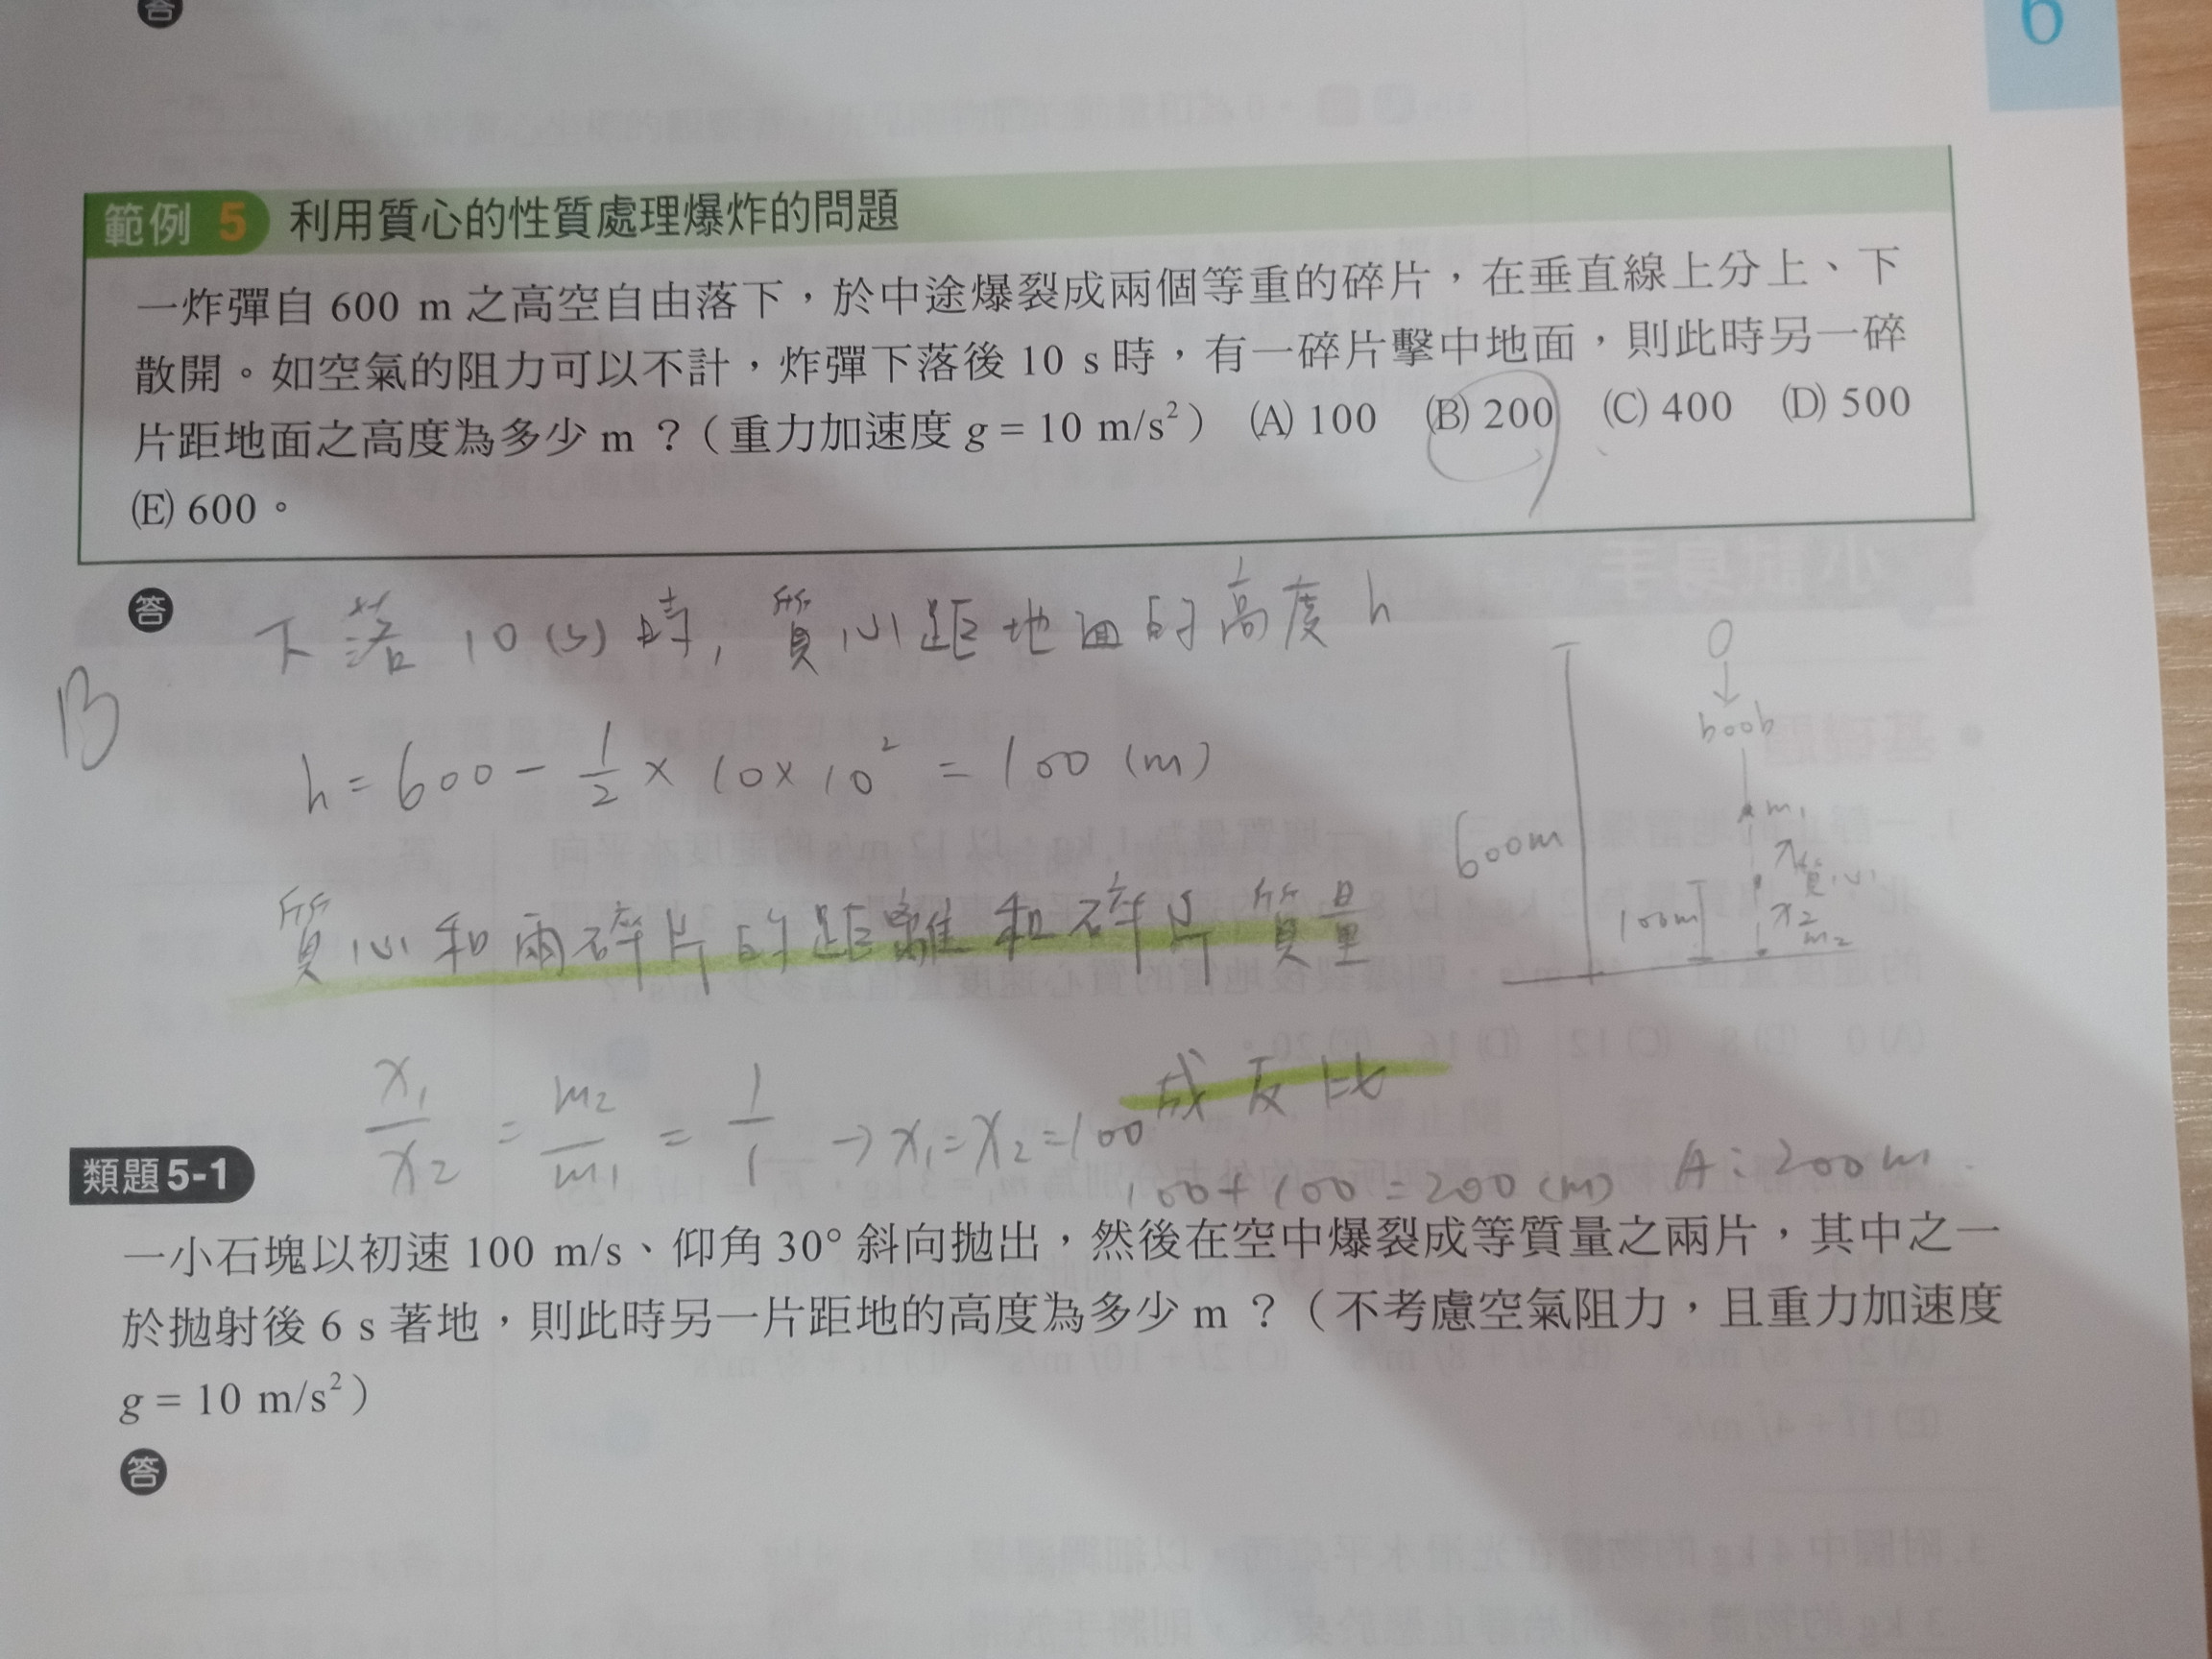 答
6
範例 5 利用質心的性質處理爆炸的問題
一炸彈自 600 m 之高空自由落下，於中途爆裂成兩個等重的碎片，在垂直線上分上、下
散開。如空氣的阻力可以不計，炸彈下落後 10 s 時，有一碎片擊中地面，則此時另一碎
片距地面之高度為多少 m ？（重力加速度 g = 10 m/s²） (A) 100 (B) 200 (C) 400 (D) 500
(E) 600。
答
下落 10 (s) 時, 質心距地面的高度 h
B
h = 600 - 1/2 × 10 × 10² = 100 (m)
質心和兩碎片的距離和碎片質量
成反比
x₁/x₂ = m₂/m₁ = 1/1 → x₁ = x₂ = 100
100 + 100 = 200 (m) A: 200 m
boob
600m
100m
m₁
x₁
質心
x₂
m₂
類題 5-1
一小石塊以初速 100 m/s、仰角 30° 斜向拋出，然後在空中爆裂成等質量之兩片，其中之一
於拋射後 6 s 著地，則此時另一片距地的高度為多少 m ？（不考慮空氣阻力，且重力加速度
g = 10 m/s²）
答